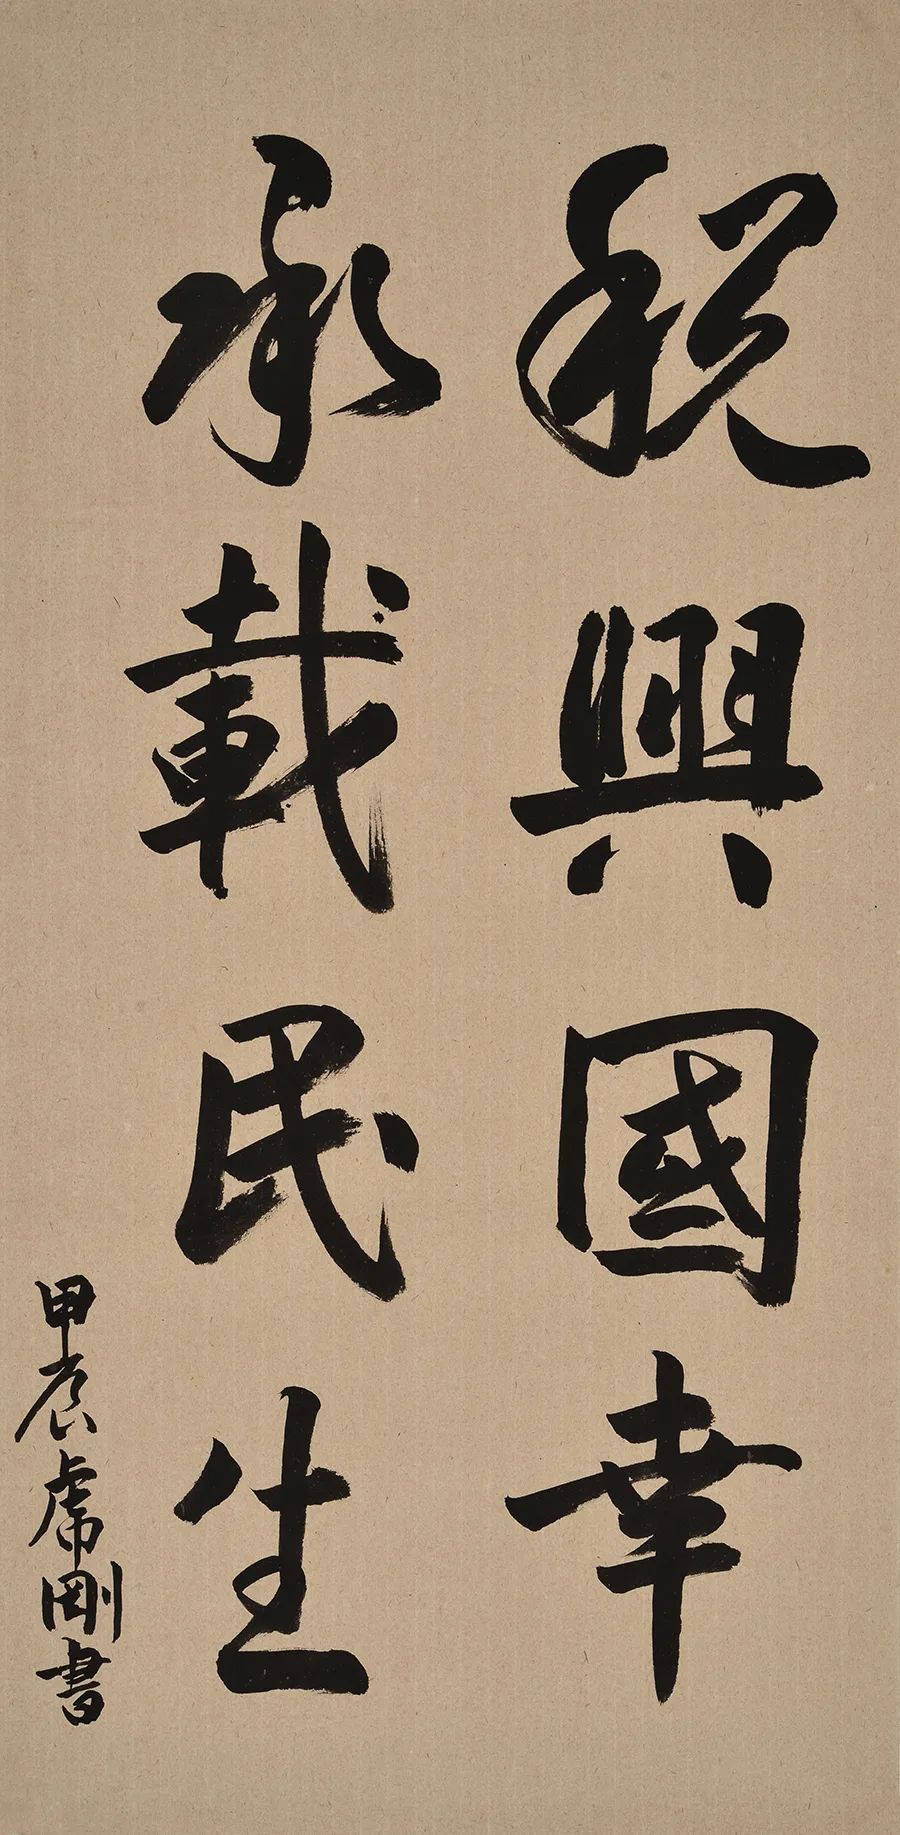 税興國幸
承載民生
甲辰虎剛書